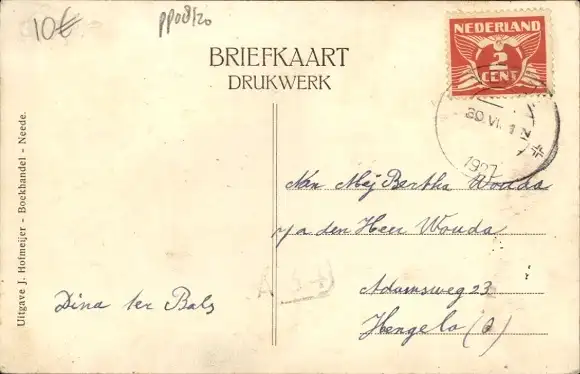 10€
pp08/20
BRIEFKAART
DRUKWERK
NEDERLAND
2
CENT
20.VI. 1
N
1927
Uitgave J. Hofmeijer - Boekhandel - Neede.
Dina ter Bals
Aan Mej Bertha Wouda
p/a den Heer Wouda
Adamsweg 23
Hengelo (O)